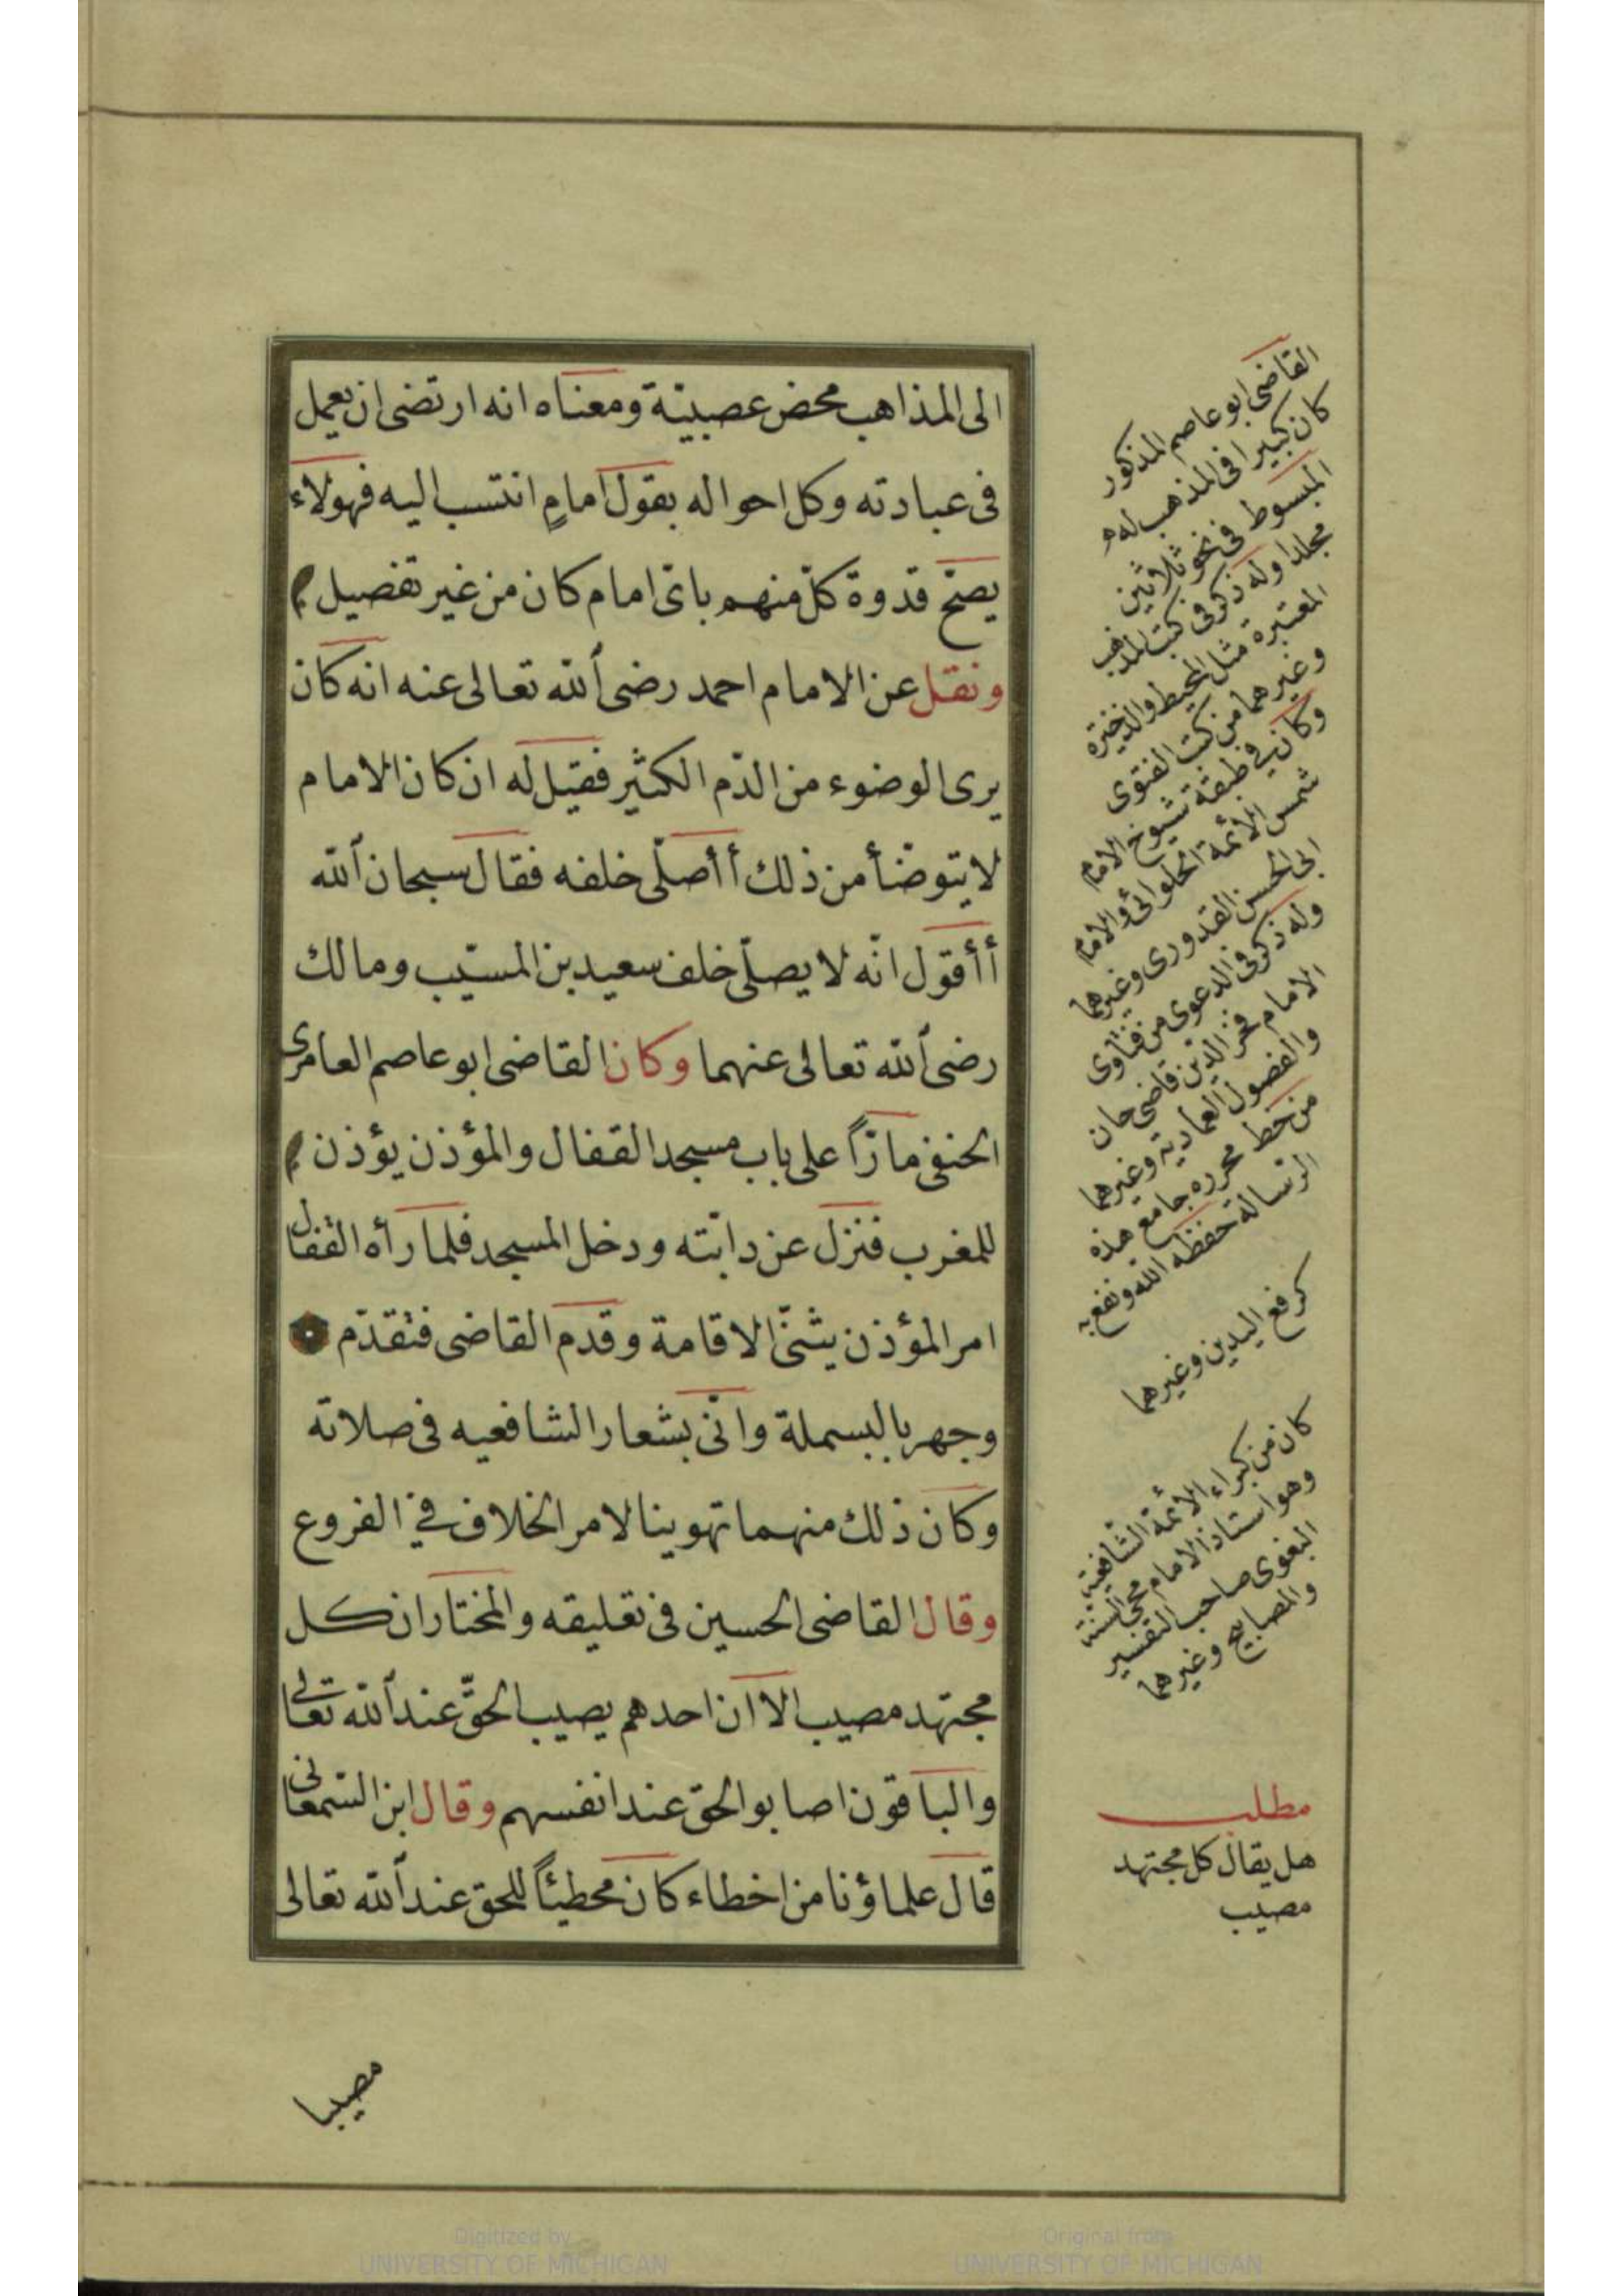 الى المذاهب محض عصبيّة ومعناه انه ارتضى ان يعمل
فى عبادته وكل احواله بقول امامٍ انتسب اليه فهولاء
يصحّ قدوة كلّ منهم باىّ امام كان من غير تفصيل
ونقل عن الامام احمد رضى الله تعالى عنه انه كان
يرى الوضوء من الدّم الكثير فقيل له ان كان الامام
لا يتوضّأ من ذلك أأصلّى خلفه فقال سبحان الله
أأقول انّه لا يصلّى خلف سعيد بن المسيّب ومالك
رضى الله تعالى عنهما وكان القاضى ابو عاصم العامرى
الحنفى مارّاً على باب مسجد القفال والمؤذن يؤذن
للمغرب فنزل عن دابّته ودخل المسجد فلما رأه القفال
امر المؤذن يثنّى الاقامة وقدم القاضى فتقدّم
وجهر بالبسملة واتى بشعار الشافعيه فى صلاته
وكان ذلك منهما تهوينا لامر الخلاف فى الفروع
وقال القاضى الحسين فى تعليقه والمختار ان كل
مجتهد مصيب الا ان احدهم يصيب الحقّ عند الله تعالى
والباقون اصابوا الحق عند انفسهم وقال ابن السّمعانى
قال علماؤنا من اخطاء كان مخطيئاً للحق عند الله تعالى
مصيبا
القاضى ابو عاصم المذكور
كان كبيرا فى المذهب له
المبسوط فى نحو ثلاثين
مجلدا وله ذكر فى كتب المذهب
المعتبره مثل المحيط والذخيرة
وغيرهما من كتب الفتوى
وكان فى طبقة شيوخ الامام
شمس الأئمة الحلوائى والامام
ابى الحسن القدورى وغيرهما
وله ذكر فى الدعوى من فتاوى
الامام فخر الدّين قاضى خان
والفصول العمادية وغيرهما
من خط محرره جامع هذه
الرّسالة حفظه الله ونفع به
كرفع اليدين وغيرهما
كان من كبراء الأئمة الشّافعية
وهو استاذ الامام محى السنة
البغوى صاحب التفسير
والمصابيح وغيرهما
مطلب
هل يقال كل مجتهد
مصيب
Digitized by
UNIVERSITY OF MICHIGAN
Original from
UNIVERSITY OF MICHIGAN